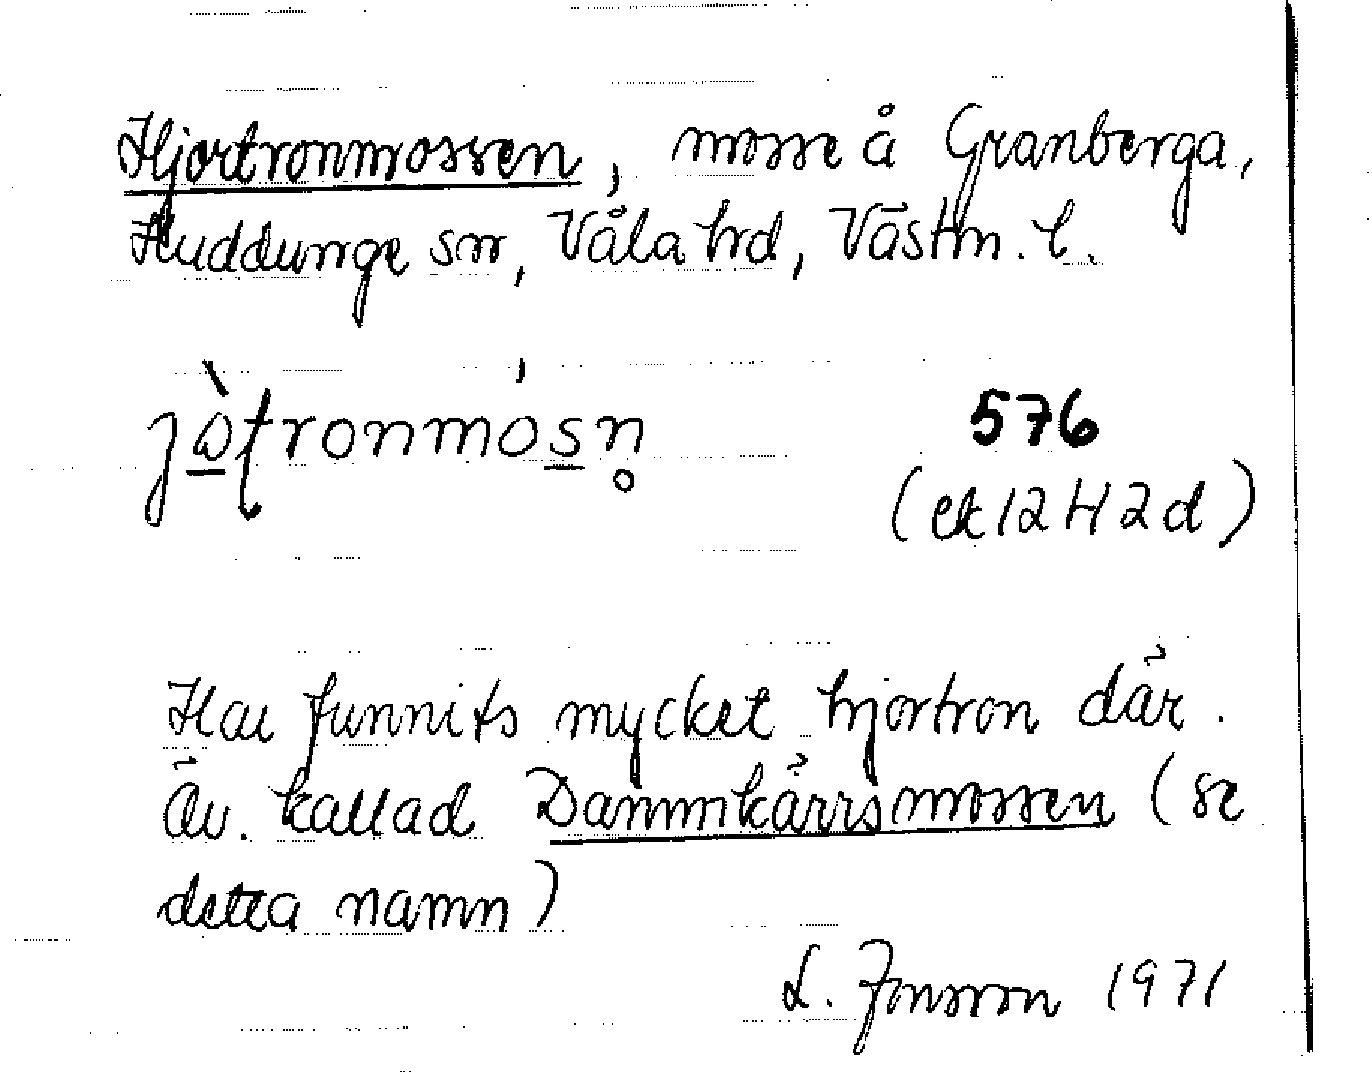 Hjortronmossen, mosse å Granberga,
Huddunge sn, Våla hd, Västm. l.
jò̱ʈronmós̱n̥
576
(ek 12 H 2 d)
Har funnits mycket hjortron där.
Äv. kallad Dammkärrsmossen (se
detta namn)
L. Jonsson 1971